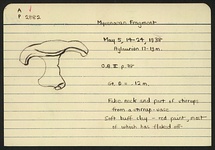 A
P 2882
Mycenaean Fragment
May 5, 19-24, 1938
O.B II p. 38
Gt. B = .12 m.
False neck and part of stirrups
from a stirrup-vase
Soft buff clay - red paint, most
of which has flaked off